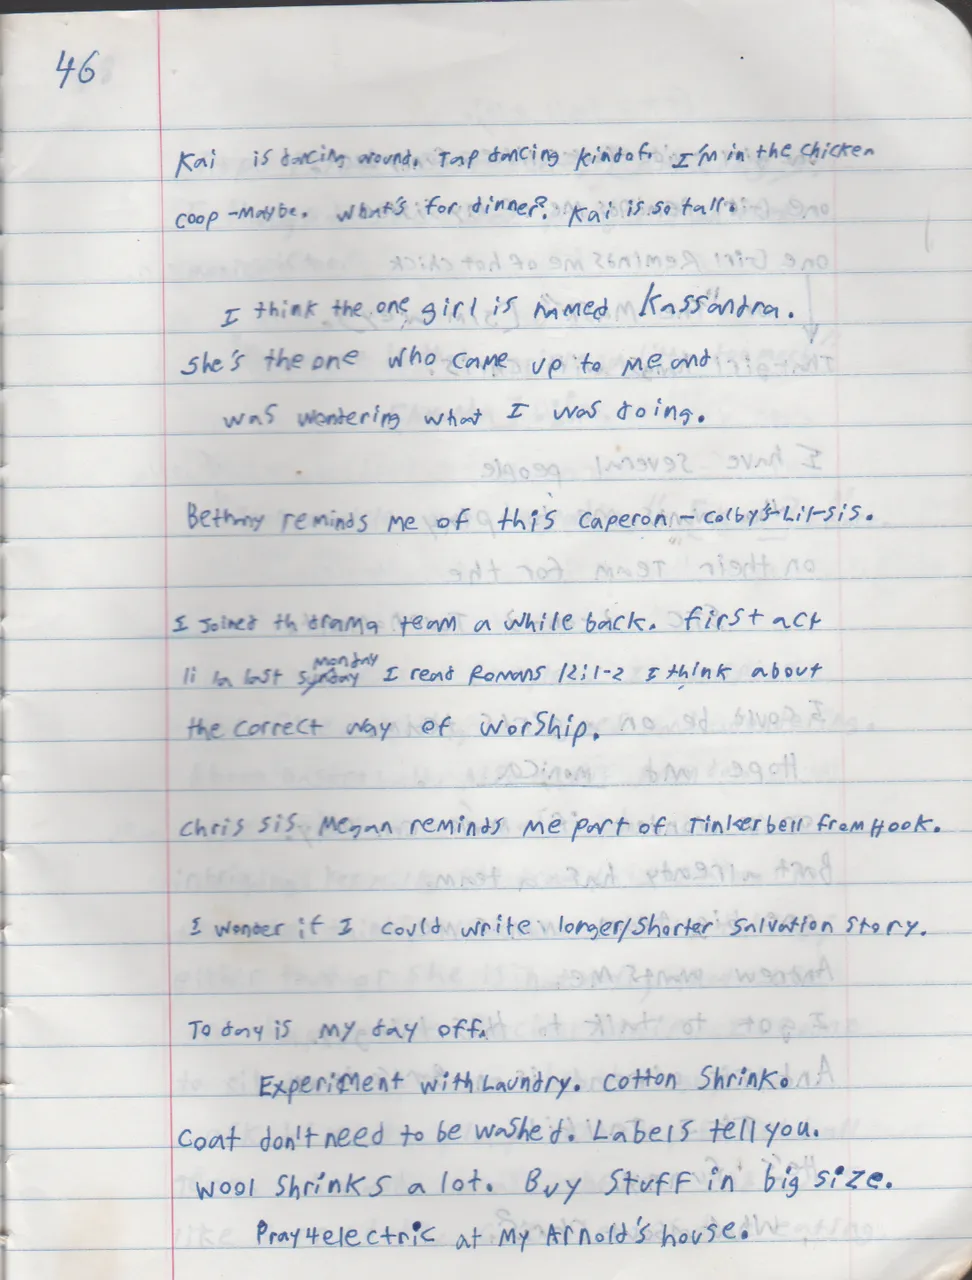 46
Kai is dancing around. Tap dancing kindof. I'm in the chicken
coop - Maybe. What's for dinner? Kai is so tall.
I think the one girl is named Kassandra.
She's the one who came up to me and
was wondering what I was doing.
Bethany reminds me of this Caperon - Colby's-Lil-sis.
I joined th drama team a while back. First act
last monday I read Romans 12:1-2 I think about
the correct way of worship.
Chris sis Megan reminds me part of Tinkerbell from Hook.
I wonder if I could write longer/shorter Salvation Story.
Today is my day off.
Experiment with Laundry. Cotton Shrink.
Coat don't need to be washed. Labels tell you.
Wool Shrinks a lot. Buy Stuff in big size.
Pray 4 electric at My Arnold's house.